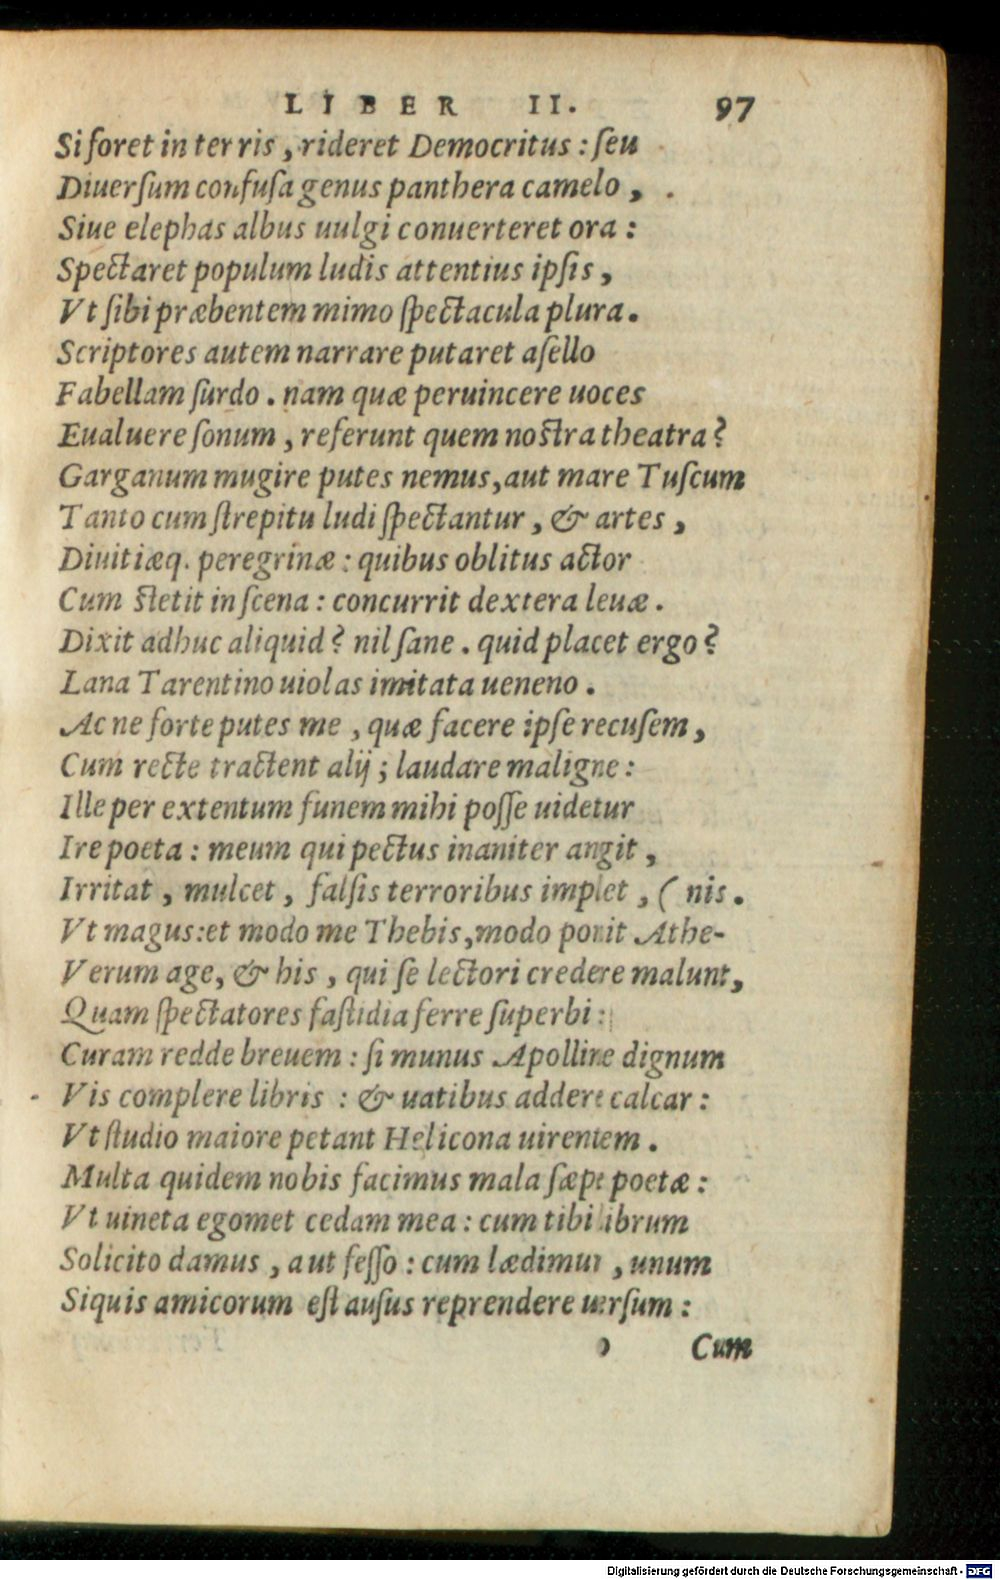 LIBER II. 97
Si foret in terris, rideret Democritus: ſeu
Diuerſum confuſa genus panthera camelo,
Siue elephas albus uulgi conuerteret ora:
Spectaret populum ludis attentius ipſis,
Vt ſibi præbentem mimo ſpectacula plura.
Scriptores autem narrare putaret aſello
Fabellam ſurdo. nam quæ peruincere uoces
Eualuere ſonum, referunt quem noſtra theatra?
Garganum mugire putes nemus, aut mare Tuſcum
Tanto cum ſtrepitu ludi ſpectantur, & artes,
Diuitiæq. peregrinæ: quibus oblitus actor
Cum ſtetit in ſcena: concurrit dextera leuæ.
Dixit adhuc aliquid? nil ſane. quid placet ergo?
Lana Tarentino uiolas imitata ueneno.
Ac ne forte putes me, quæ facere ipſe recuſem,
Cum recte tractent alij; laudare maligne:
Ille per extentum funem mihi poſſe uidetur
Ire poeta: meum qui pectus inaniter angit,
Irritat, mulcet, falſis terroribus implet, (nis.
Vt magus: et modo me Thebis, modo ponit Athe-
Verum age, & his, qui ſe lectori credere malunt,
Quam ſpectatores faſtidia ferre ſuperbi:
Curam redde breuem: ſi munus Apolline dignum
Vis complere libris: & uatibus addere calcar:
Vt ſtudio maiore petant Helicona uirentem.
Multa quidem nobis facimus mala ſæpe poetæ:
Vt uineta egomet cedam mea: cum tibi librum
Solicito damus, aut feſſo: cum lædimur, unum
Siquis amicorum eſt auſus reprendere uerſum:
Cum
Digitalisierung gefördert durch die Deutsche Forschungsgemeinschaft - DFG